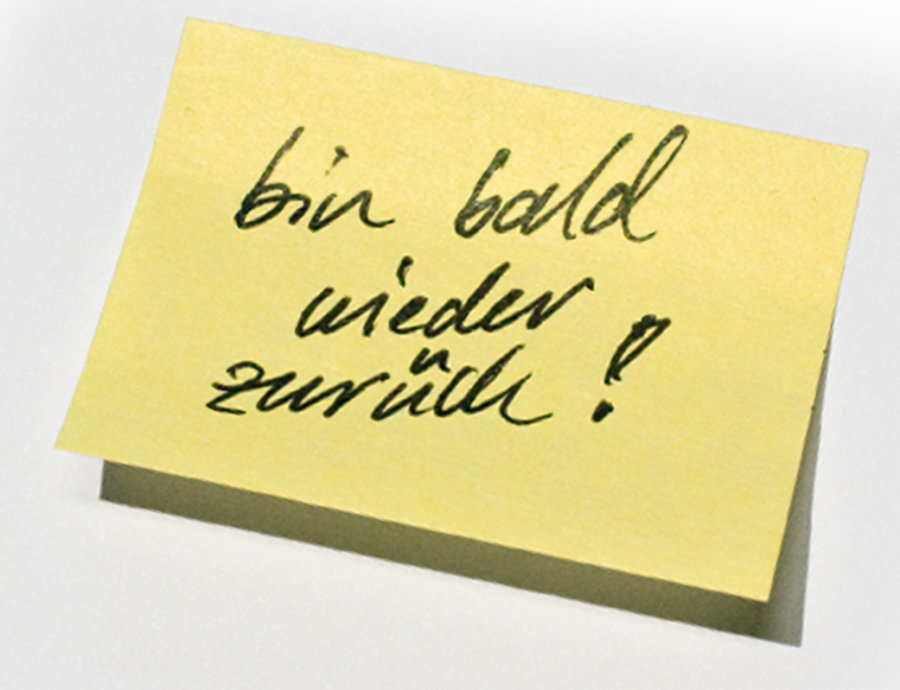 bin bald
wieder
zurück!